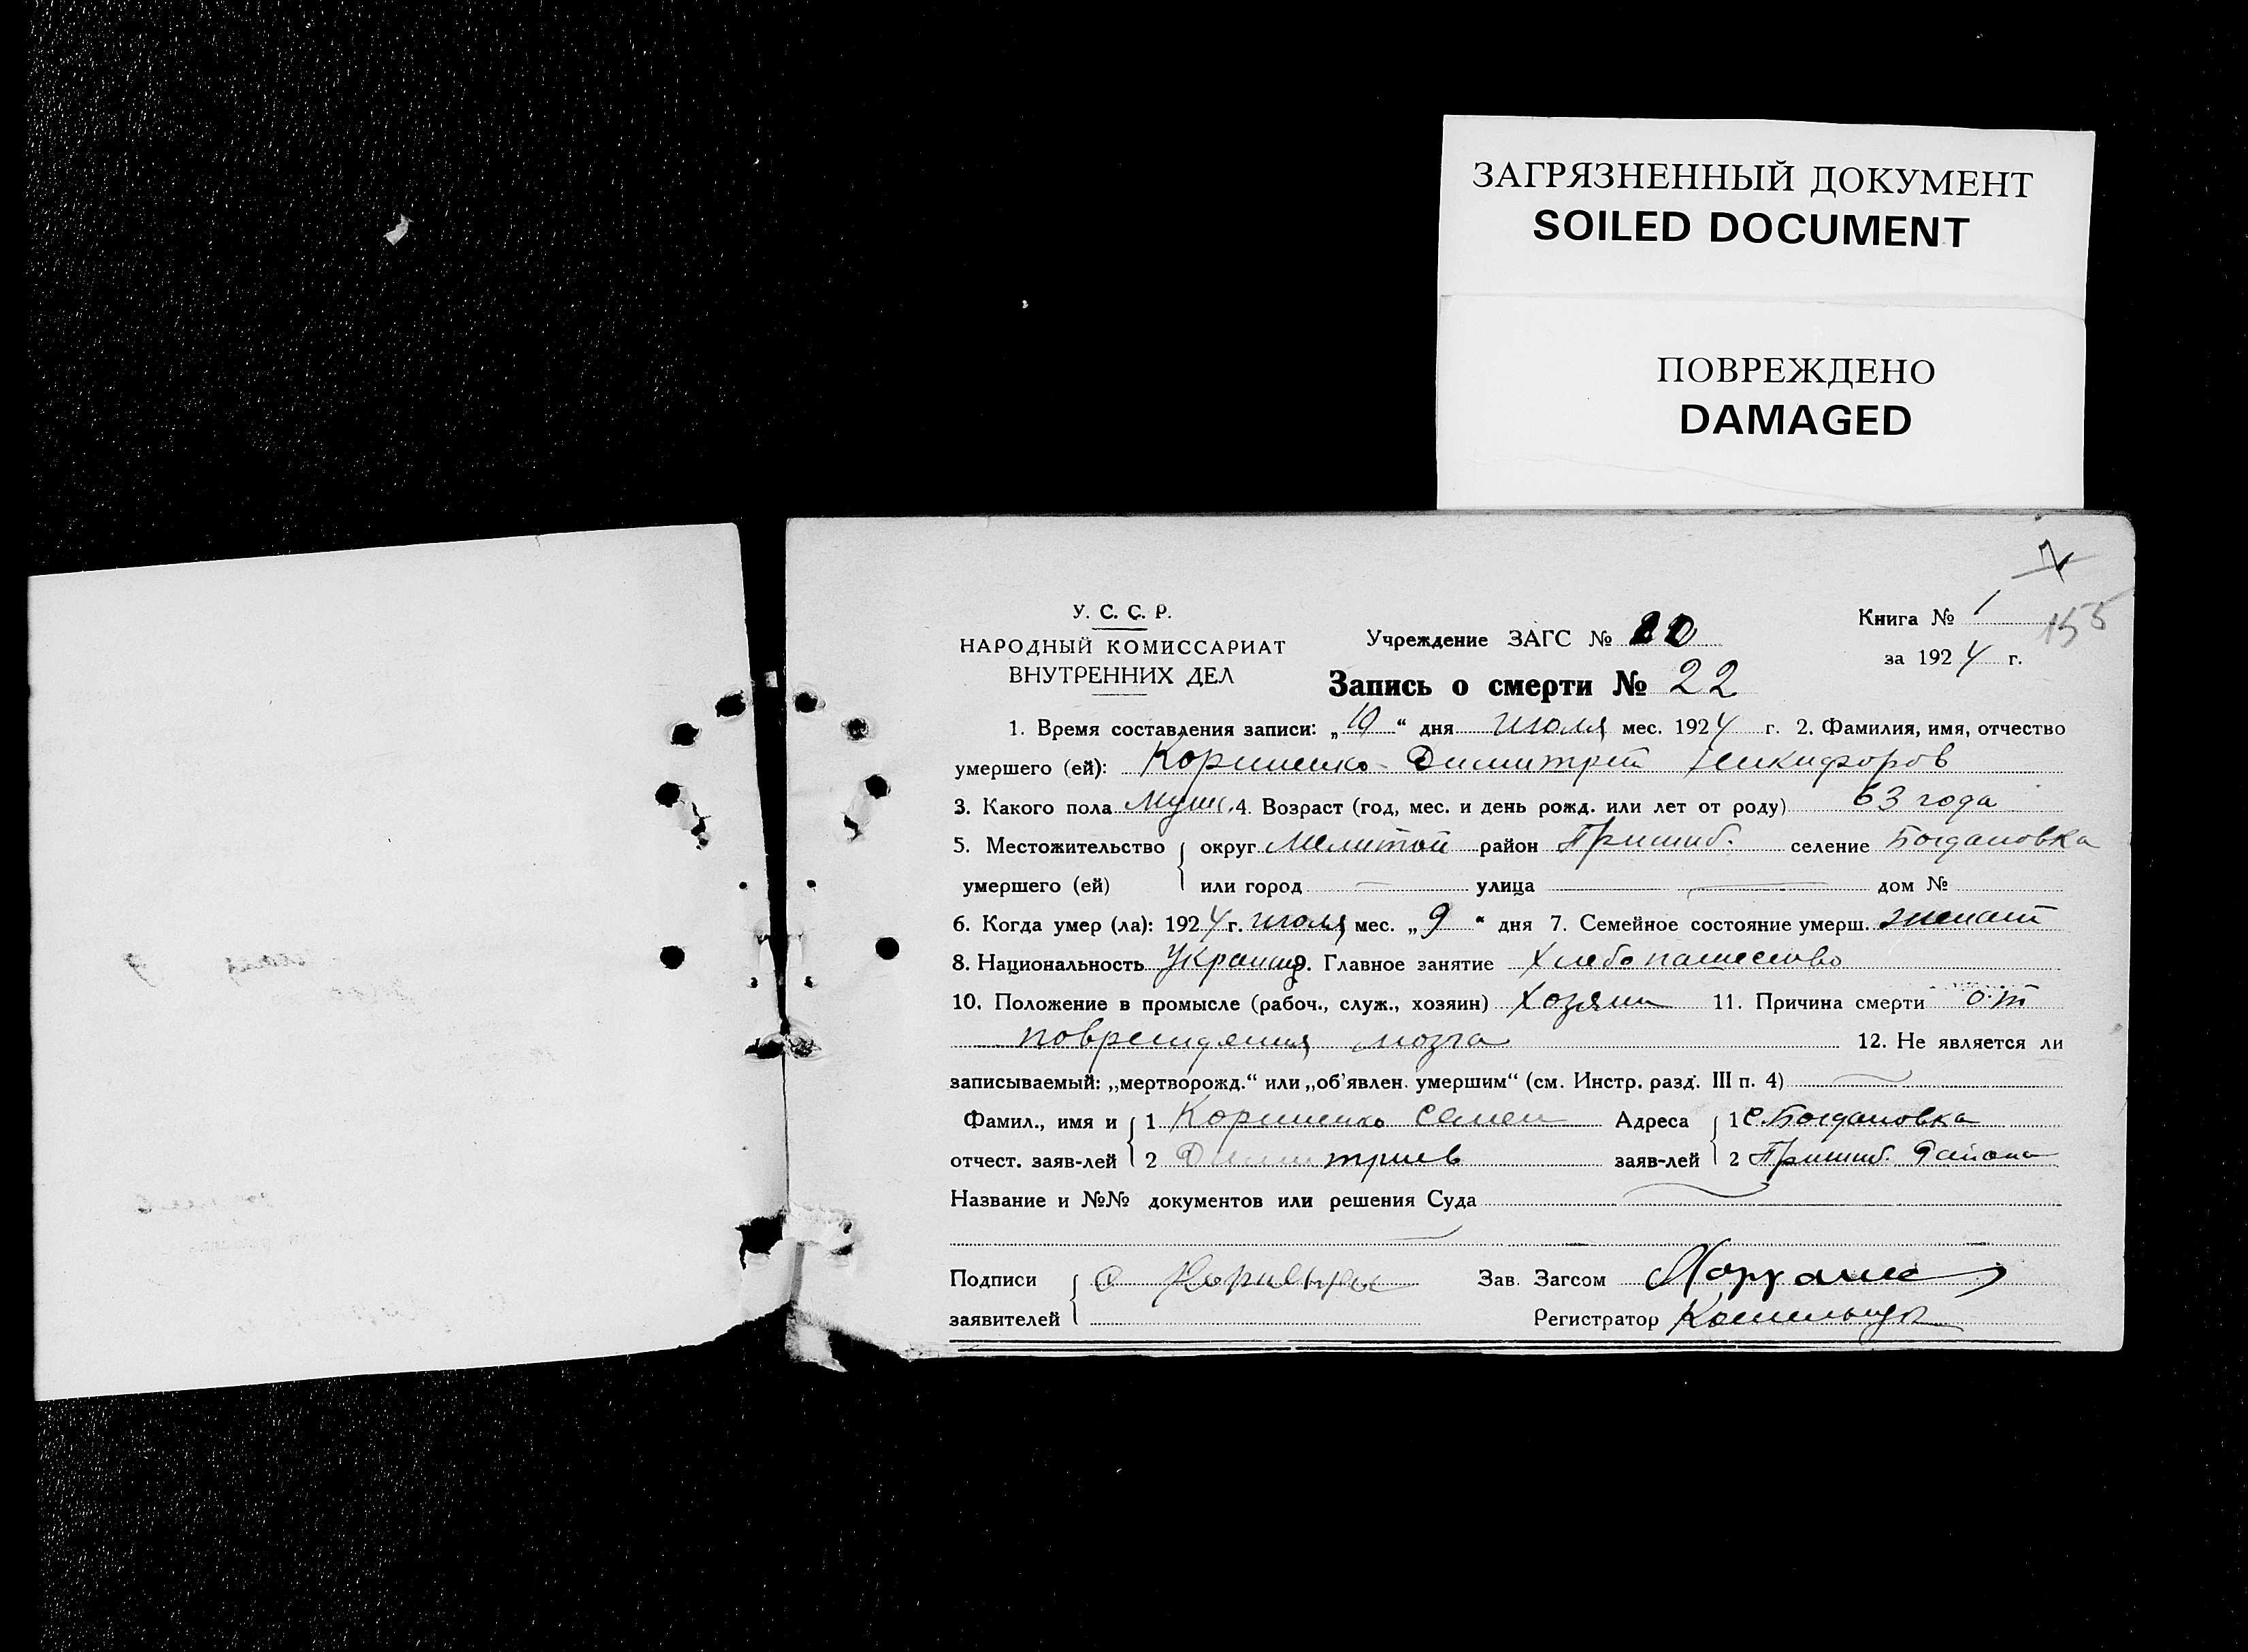 ЗАГРЯЗНЕННЫЙ ДОКУМЕНТ
SOILED DOCUMENT
ПОВРЕЖДЕНО
DAMAGED
155
У. С. С. Р.
НАРОДНЫЙ КОМИССАРИАТ
ВНУТРЕННИХ ДЕЛ
Учреждение ЗАГС №
Книга № 1
за 1924 г.
Запись о смерти № 22
1. Время составления записи: „10“ дня июля мес. 1924 г. 2. Фамилия, имя, отчество
умершего (ей): Корниенко Димитрий Никифоров
3. Какого пола Муж. 4. Возраст (год, мес. и день рожд. или лет от роду) 63 года
5. Местожительство округ Мелитоп район Пришиб. селение Богдановка
умершего (ей) или город улица дом №
6. Когда умер (ла): 1924 г. июля мес. „9“ дня 7. Семейное состояние умерш. женат
8. Национальность Украин 9. Главное занятие Хлебопашество
10. Положение в промысле (рабоч., служ., хозяин) Хозяин 11. Причина смерти от
повреждения мозга 12. Не является ли
записываемый: „мертворожд.“ или „об'явлен. умершим“ (см. Инстр. разд. III п. 4)
Фамил., имя и 1 Корниенко Семен Адреса 1 с. Богдановка
отчест. заяв-лей 2 Димитриев заяв-лей 2 Пришиб. Района
Название и №№ документов или решения Суда
Подписи Зав. Загсом
заявителей Регистратор